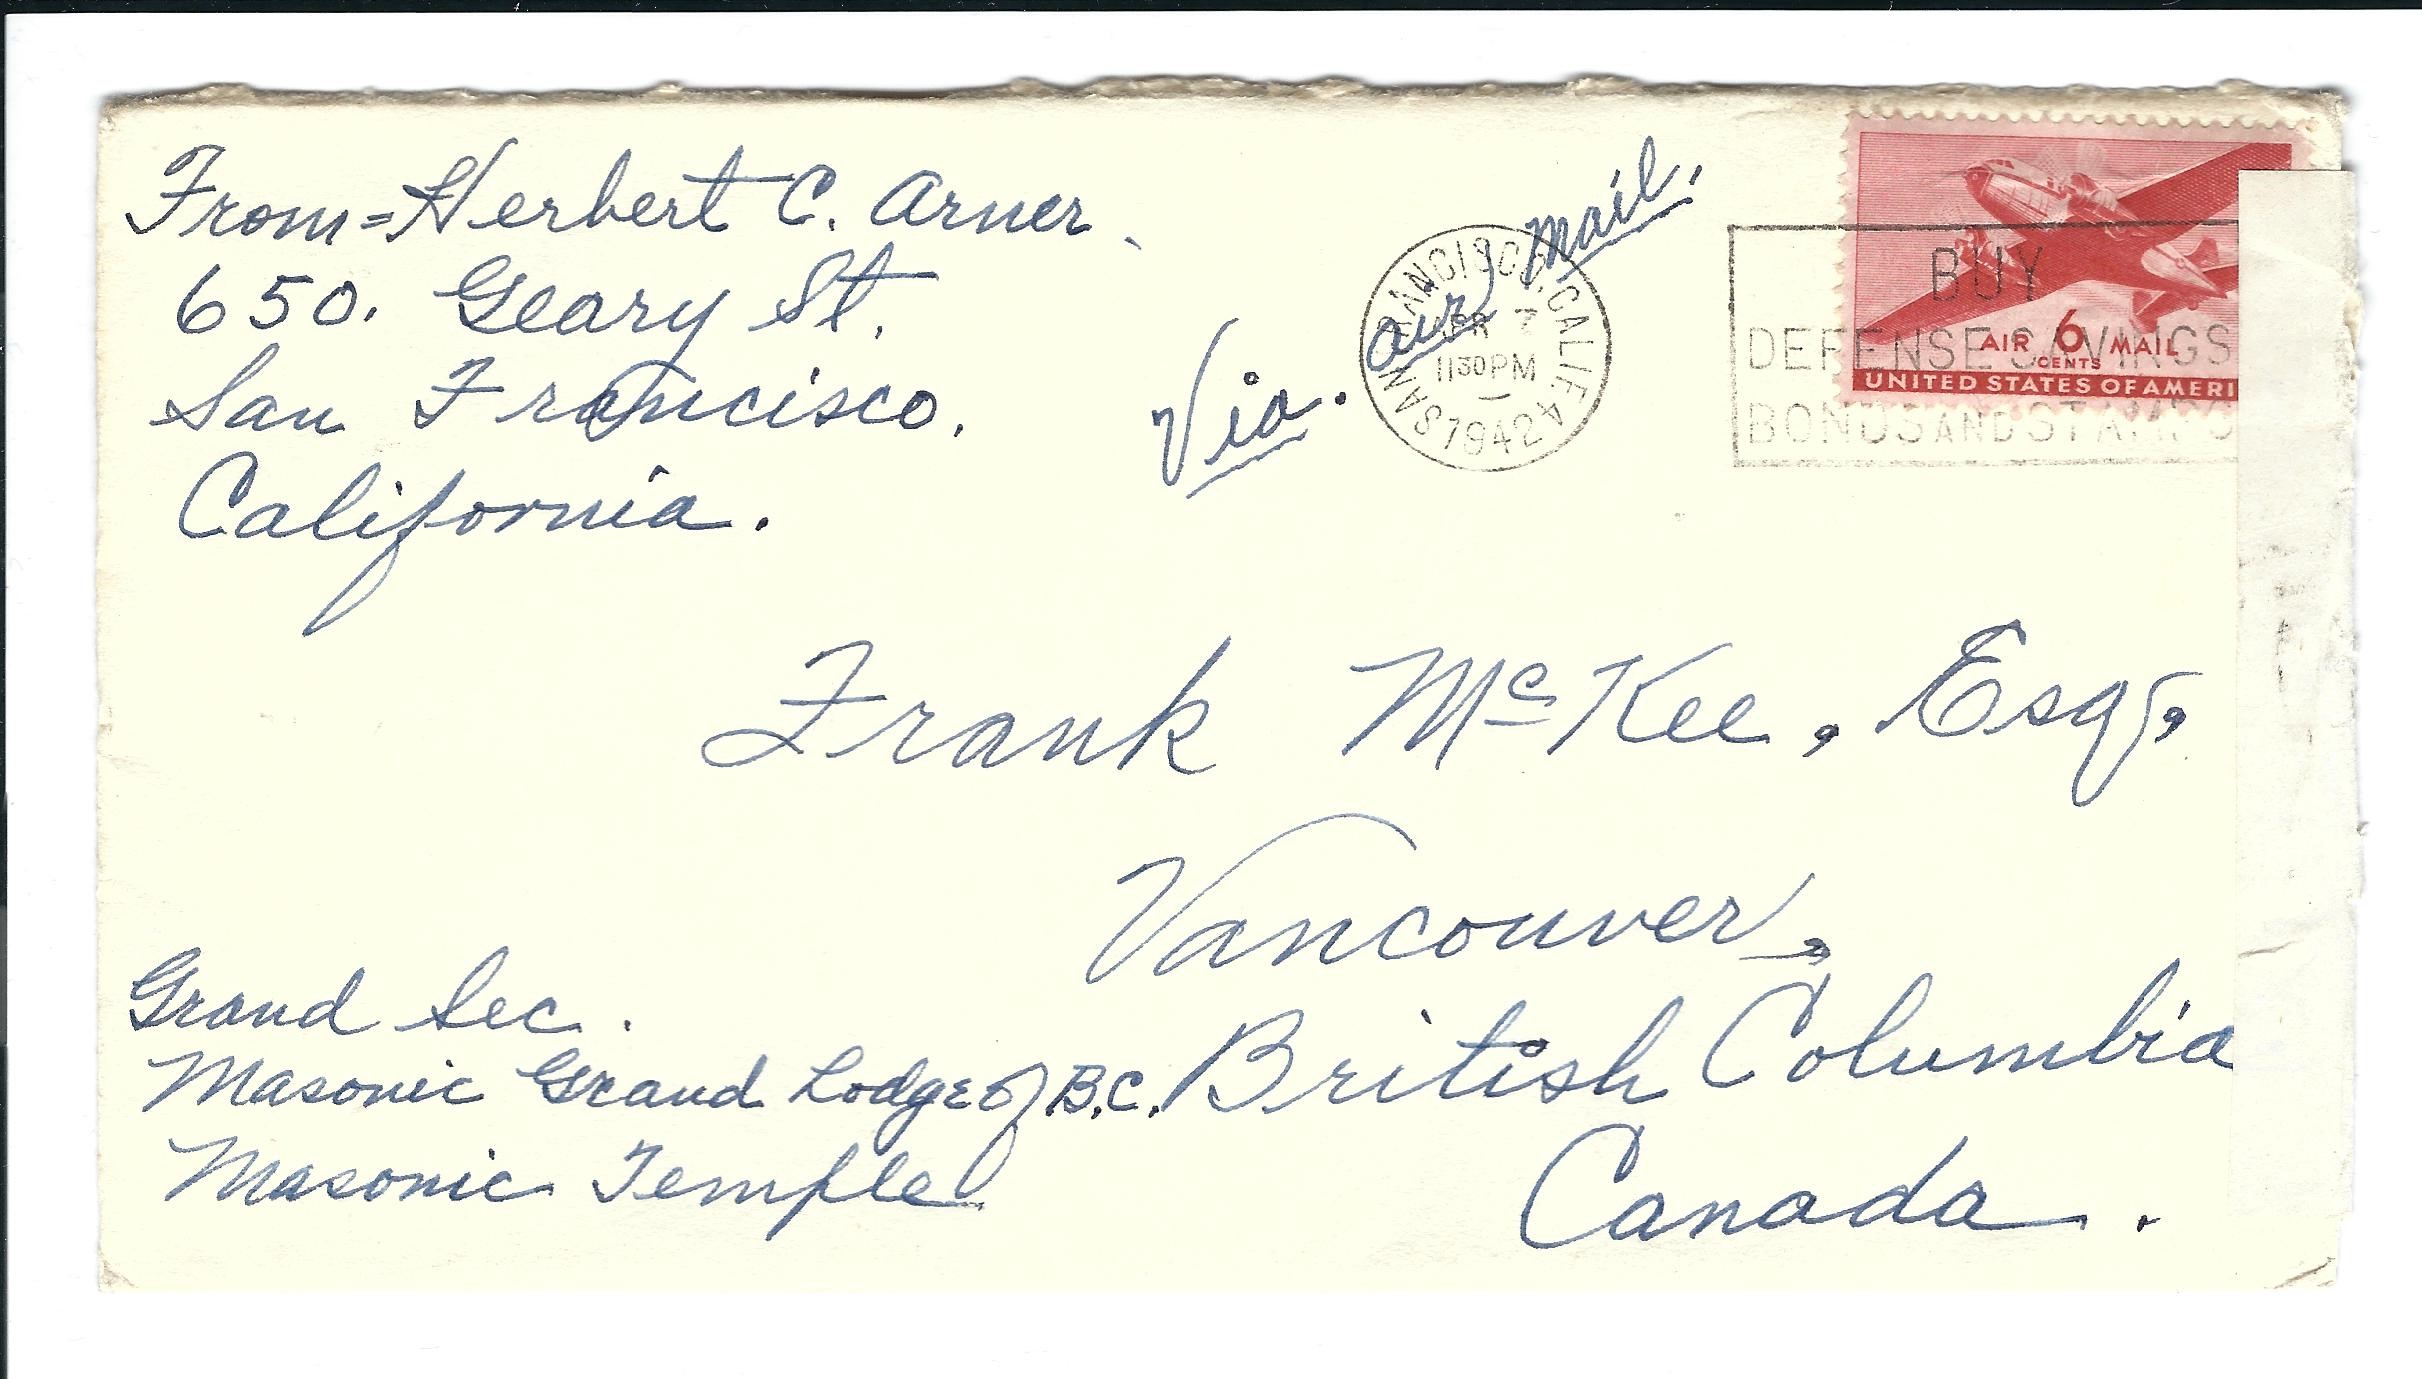 From = Herbert C. Arner.
650. Geary St.
San Francisco.
California.
Via. Air Mail.
SAN FRANCISCO, CALIF.
APR 7
1130 PM
1942
BUY
DEFENSE SAVINGS
BONDS AND STAMPS
AIR 6 MAIL
CENTS
UNITED STATES OF AMERI
Frank McKee, Esq,
Vancouver,
British Columbia
Canada.
Grand Sec.
Masonic Grand Lodge of B.C.
Masonic Temple